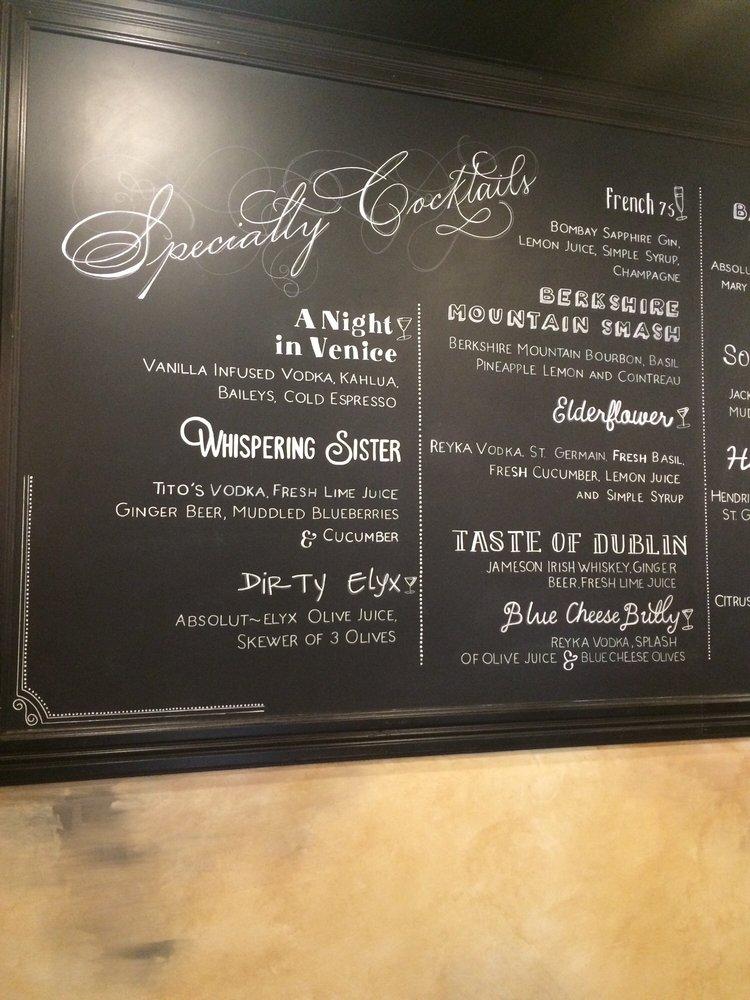 Specialty Cocktails
A Night
in Venice
Vanilla Infused Vodka, Kahlua,
Baileys, Cold Espresso
Whispering Sister
Tito's Vodka, Fresh Lime Juice
Ginger Beer, Muddled Blueberries
& Cucumber
Dirty Elyx
Absolut~Elyx Olive Juice,
Skewer of 3 Olives
French 75
Bombay Sapphire Gin,
Lemon Juice, Simple Syrup,
Champagne
Berkshire
Mountain Smash
Berkshire Mountain Bourbon, Basil
Pineapple Lemon and Cointreau
Elderflower
Reyka Vodka, St. Germain, Fresh Basil,
Fresh Cucumber, Lemon Juice
and Simple Syrup
Taste of Dublin
Jameson Irish Whiskey, Ginger
Beer, Fresh Lime Juice
Blue Cheese Bully
Reyka Vodka, Splash
of Olive Juice & Blue Cheese Olives
Absol
Mary
So
Jac
Mud
H
Hendri
St. G
Citrus